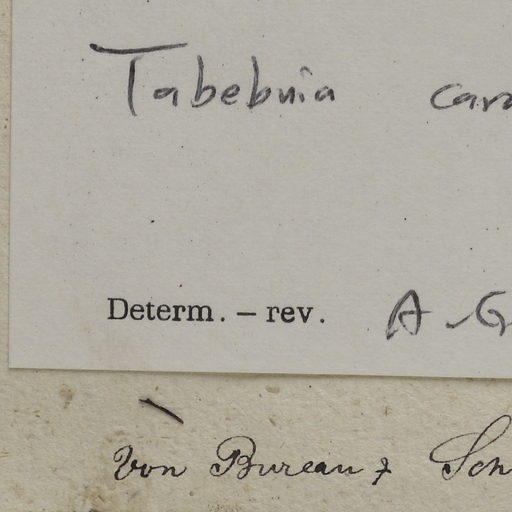 Tabebuia cara
Determ. – rev. A. G
von Bureau & Sch